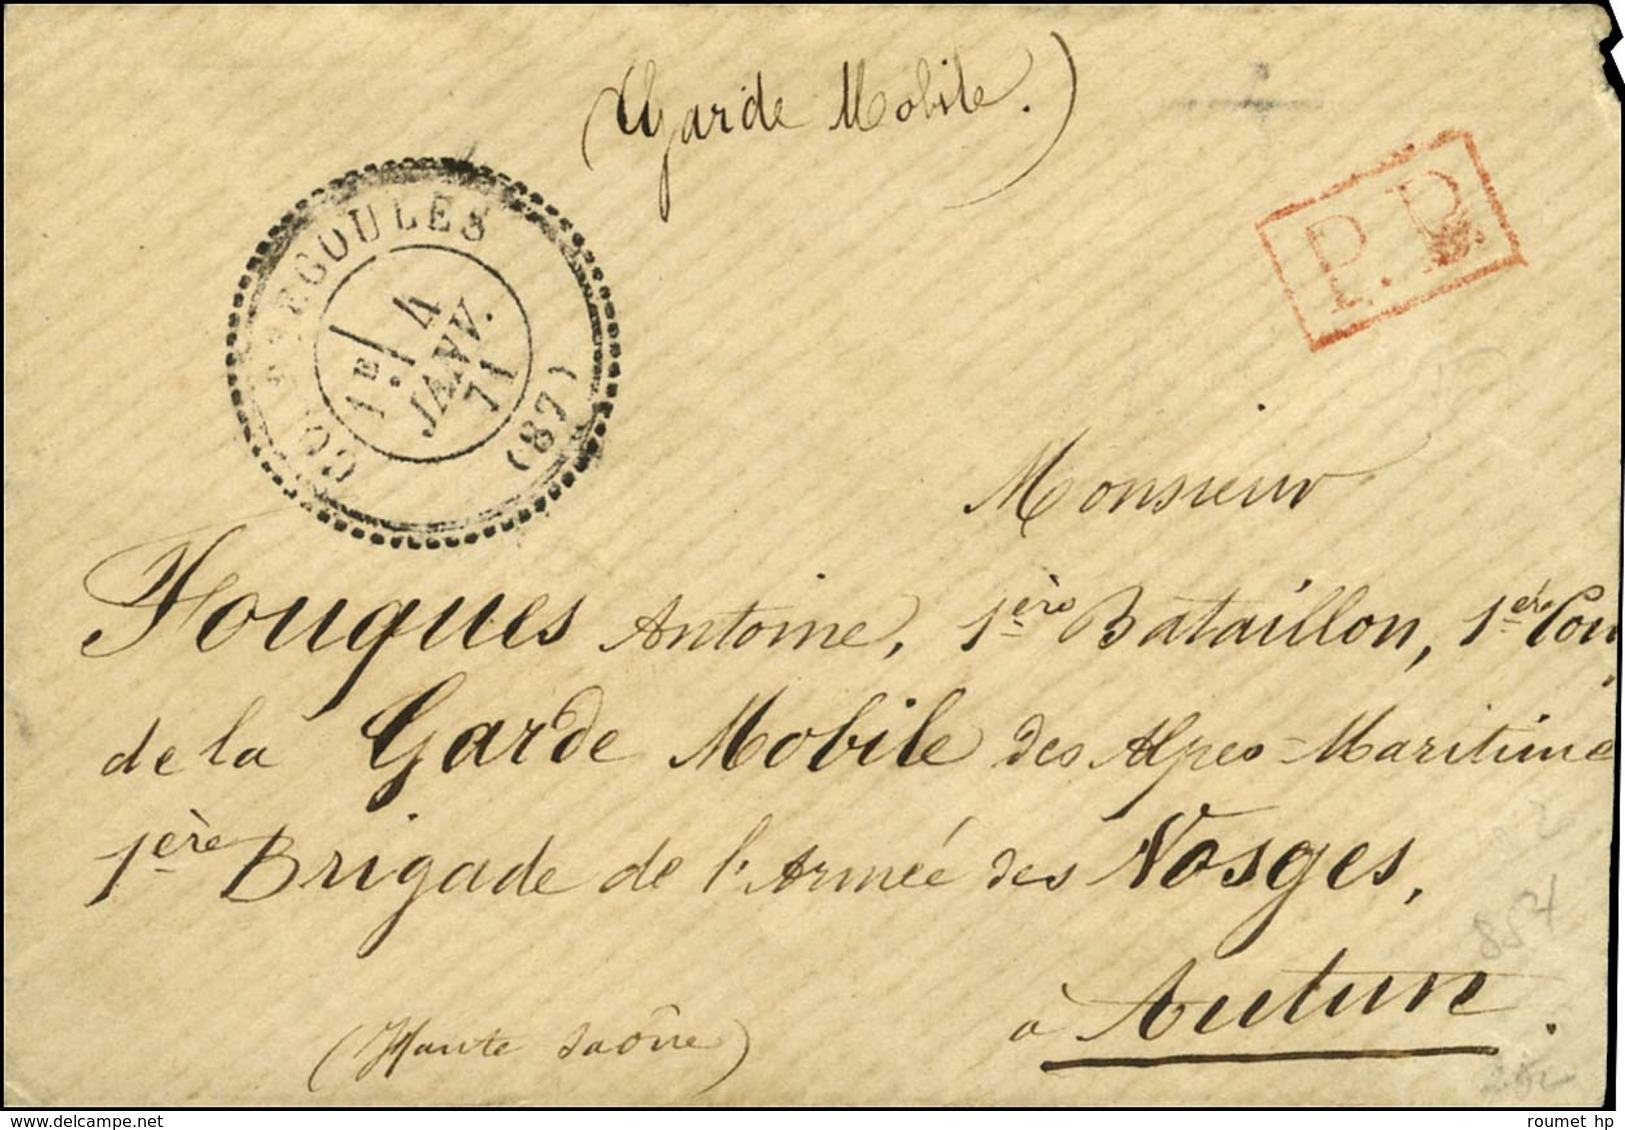 (Garde Mobile.)
P.P.
COURSEGOULES
1RE 4
JANV.
71
(87)
Monsieur
Fouques Antoine, 1ère Bataillon, 1ère Com
de la Garde Mobile des Alpes-Maritime
1ère Brigade de l'Armée des Vosges,
à Autun.
(Haute Saône)
857
roumet hp